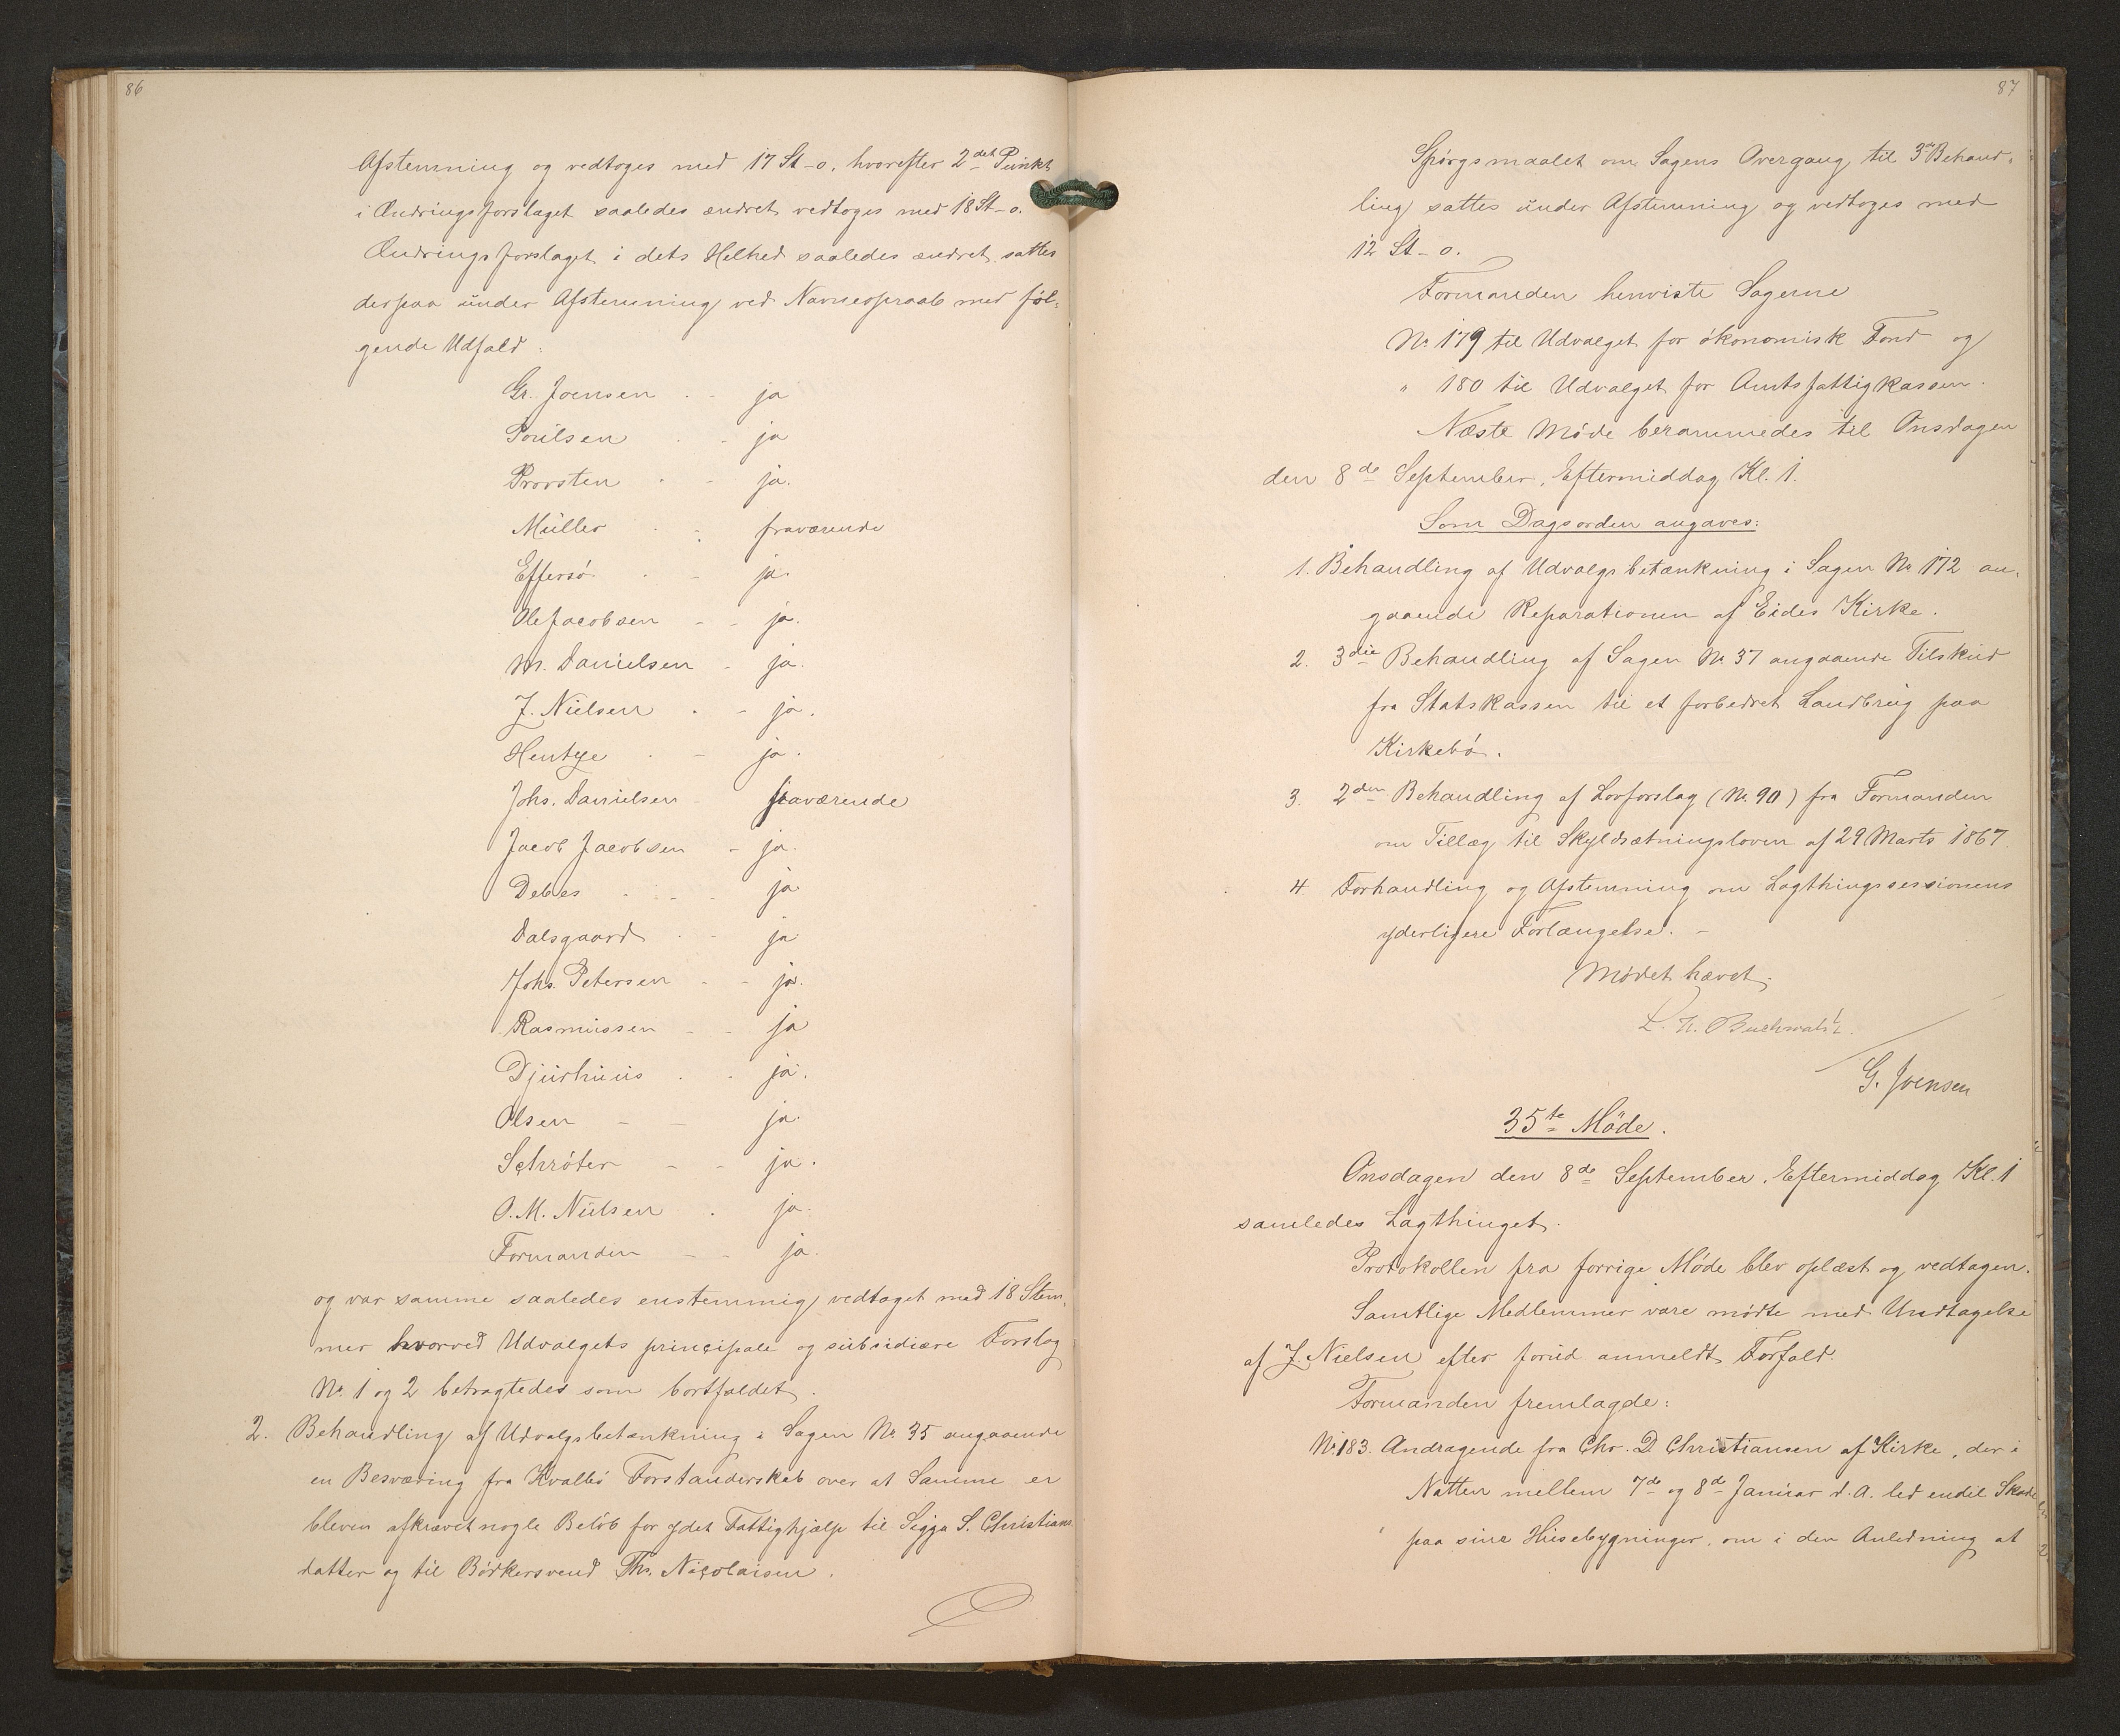 86
Afstemning og vedtoges med 17 St-o. hvorefter 2det Punkt
i Ændringsforslaget saaledes ændret vedtoges med 18 St-o.
Ændringsforslaget i dets Helhed saaledes ændret sattes
derpaa under Afstemning ved Navneopraab med føl-
gende Udfald:
Gr. Joensen - - ja
Poulsen - - ja
Provsten - - ja.
Müller - - fraværende
Effersø - - ja.
Ole Jacobsen - - ja.
M. Danielsen - ja.
J. Nielsen - - ja.
Hentze - - ja.
Johs. Danielsen - fraværende
Jacob Jacobsen - ja.
Debes - - - ja
Dalsgaard - - ja
Johs. Petersen - - ja.
Rasmussen - - ja
Djurhuus - - ja.
Olsen - - ja.
Schrøter - - ja.
O. M. Nielsen - ja
Formanden - - ja.
og var samme saaledes enstemmig vedtaget med 18 Stem-
mer hvorved Udvalgets principale og subsidiære Forslag
No. 1 og 2 betragtedes som bortfaldet.
2. Behandling af Udvalgsbetænkning i Sagen No. 35 angaaende
en Besværing fra Kvalbø Forstanderskab over at Samme er
bleven afkrævet nogle Beløb for ydet Fattighjælp til Sigga S. Christians-
datter og til Bødkersvend Th. Nicolaisen.
87
Spørgsmaalet om Sagens Overgang til 3die Behand-
ling sattes under Afstemning og vedtoges med
12 St-o.
Formanden henviste Sagerne
No. 179 til Udvalget for økonomisk Fond og
" 180 til Udvalget for Amtsfattigkassen.
Næste Møde berammedes til Onsdagen
den 8de September, Eftermiddag Kl. 1.
Som Dagsorden angaves:
1. Behandling af Udvalgsbetænkning i Sagen No 172 an-
gaaende Reparationen af Eides Kirke.
2. 3die Behandling af Sagen No 37 angaaende Tilskud
fra Statskassen til et forbedret Landbrug paa
Kirkebø.
3. 2den Behandling af Lovforslag (No. 90) fra Formanden
om Tillæg til Skyldsætningsloven af 29 Marts 1867.
4. Forhandling og Afstemning om Lagthingssessionens
yderligere Forlængelse. -
Mødet hævet.
Buchwaldt.
G. Joensen
35te Møde.
Onsdagen den 8de September, Eftermiddag Kl. 1
samledes Lagthinget.
Protokollen fra forrige Møde blev oplæst og vedtagen.
Samtlige Medlemmer vare mødte med Undtagelse
af J. Nielsen efter forud anmeldt Forfald.
Formanden fremlagde:
No. 183. Andragende fra Chr. D Christiansen af Kirke, der i
Natten mellem 7de og 8de Januar d. A. led endel Skade
paa sine Husebygninger, om i den Anledning at